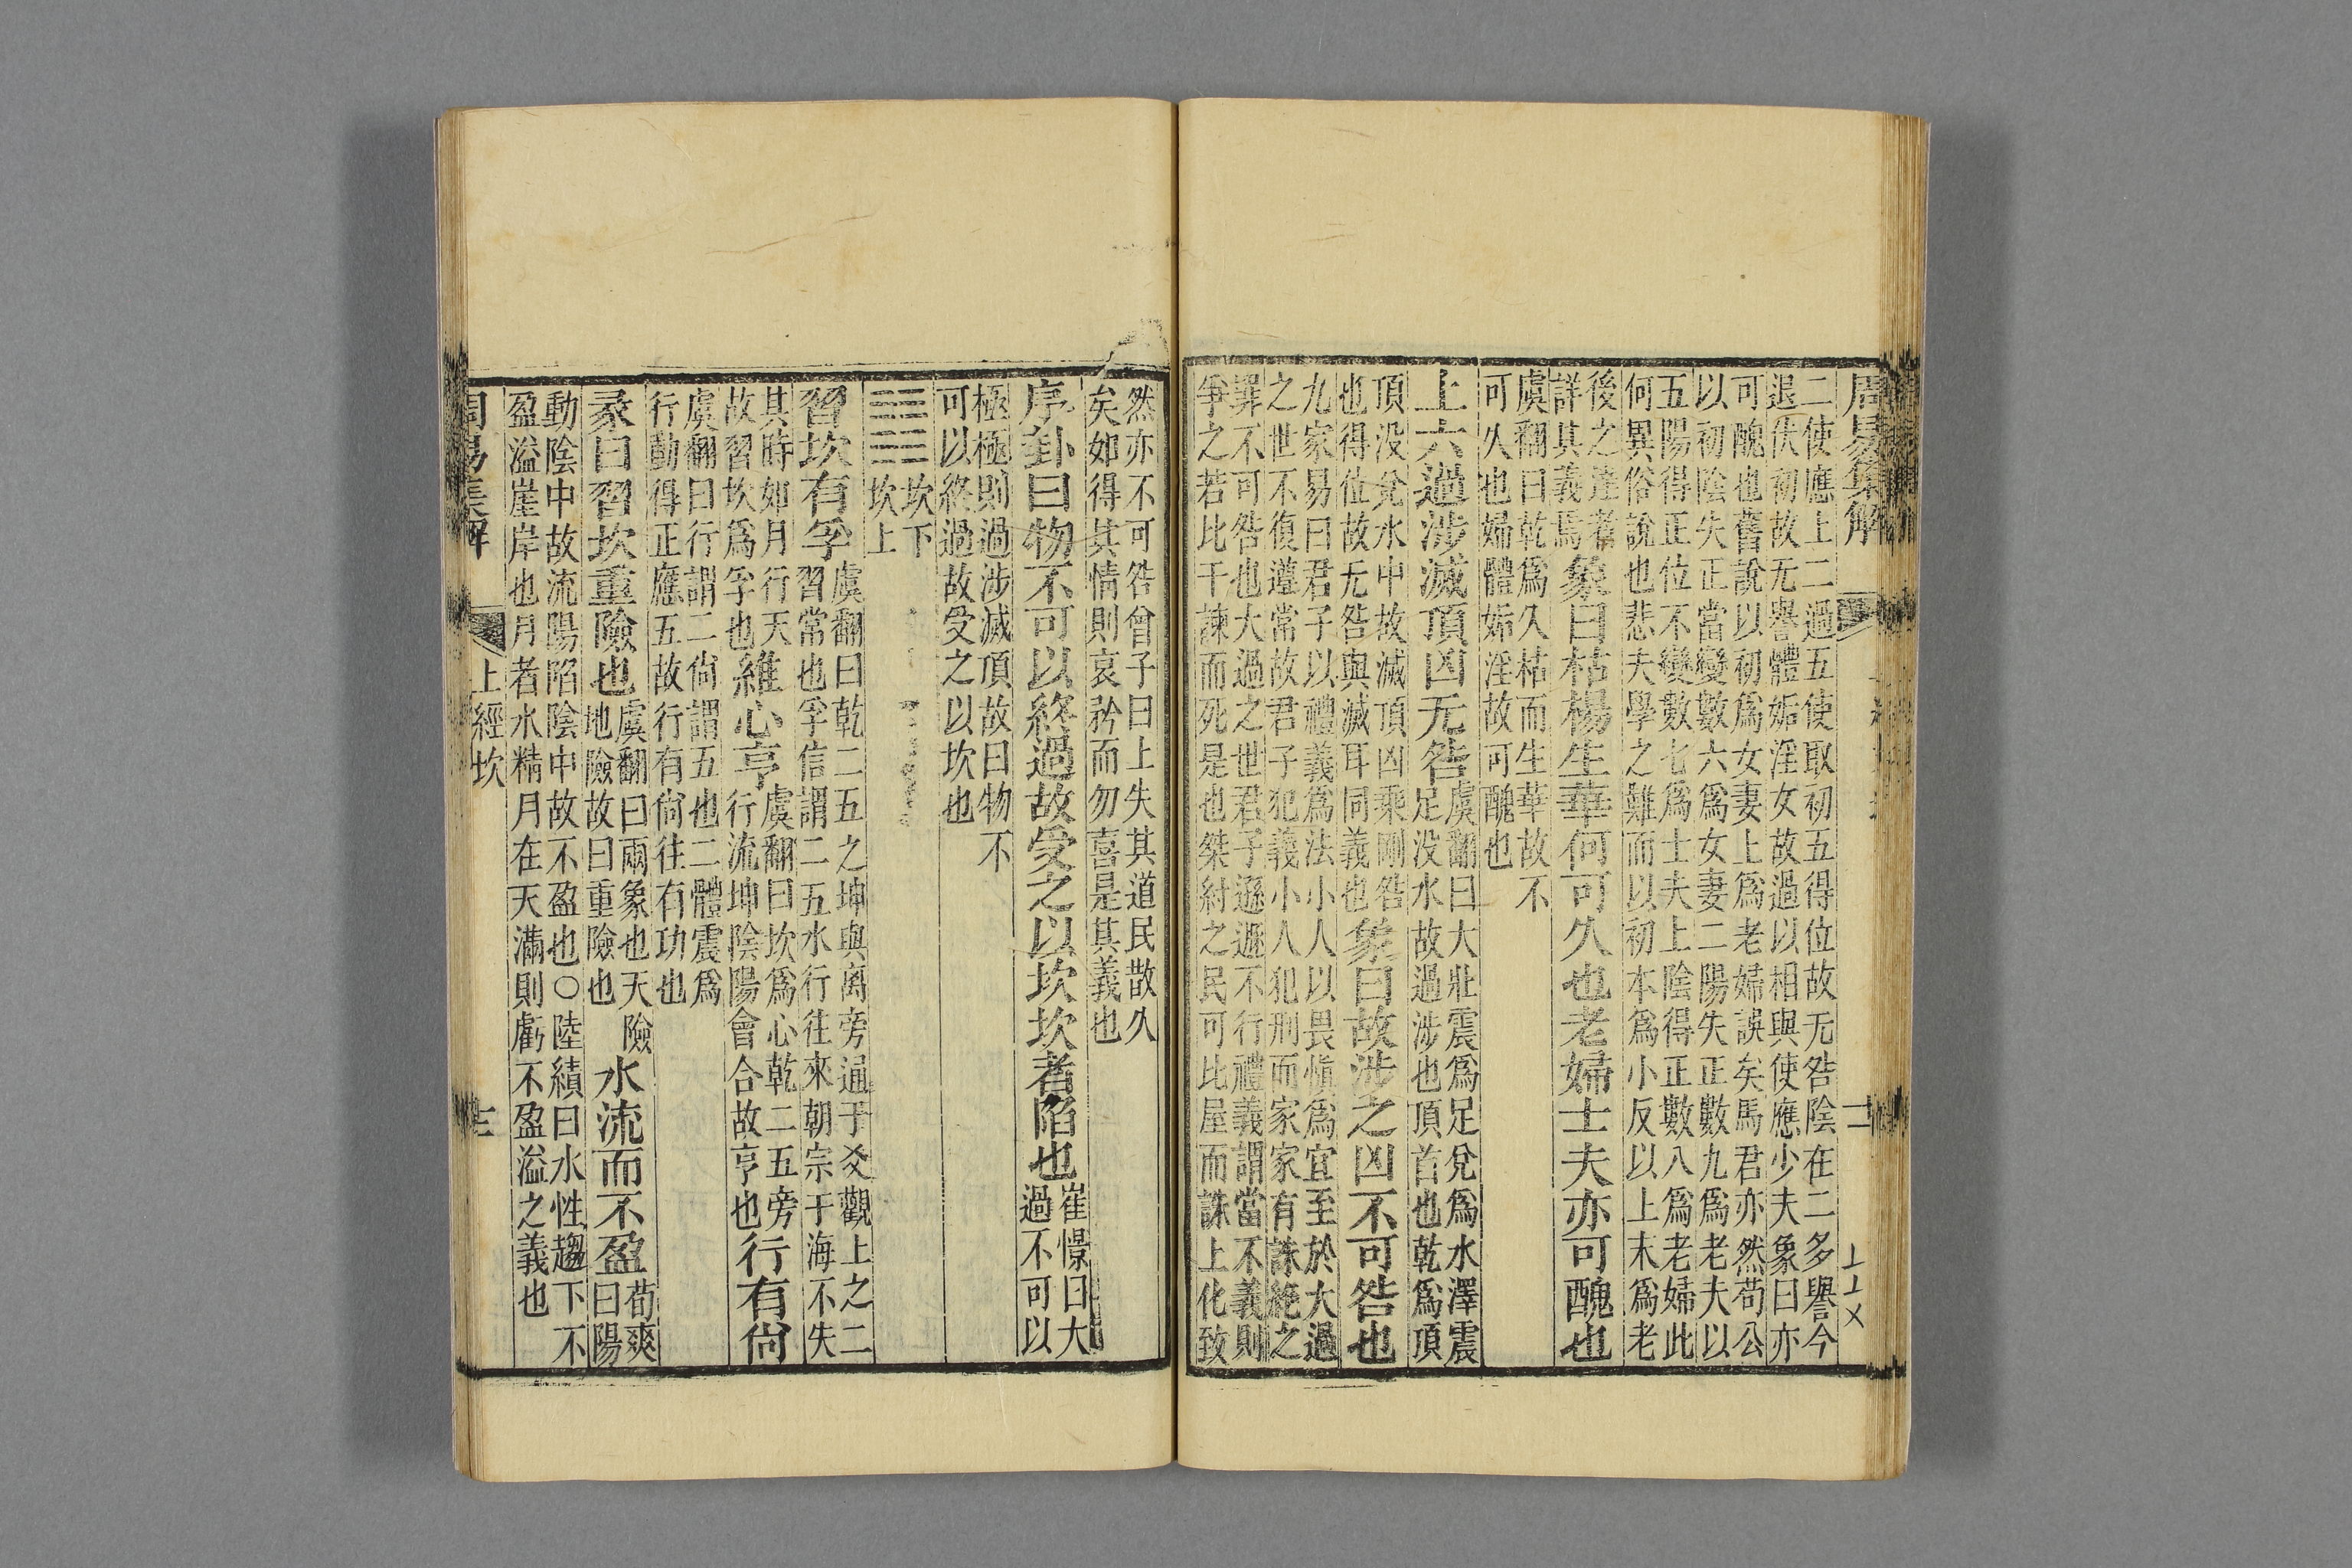 周易集解
二使應上二過五使取初五得位故无咎陰在二多譽今
退伏初故无譽體姤淫女故過以相與使應少夫象曰亦
可醜也舊說以初爲女妻上爲老婦誤矣馬君亦然荀公
以初陰失正當變數六爲女妻二陽失正數九爲老夫以
五陽得正位不變數七爲士夫上陰得正數八爲老婦此
何異俗說也悲夫學之難而以初本爲小反以上末爲老
後之達者
詳其義焉
象曰枯楊生華何可久也老婦士夫亦可醜也
虞翻曰乾爲久枯而生華故不
可久也婦體姤淫故可醜也
上六過涉滅頂凶无咎
虞翻曰大壯震爲足兌爲水澤震
足没水故過涉也頂首也乾爲頂
頂没兌水中故滅頂凶乘剛咎
也得位故无咎與滅耳同義也
象曰故涉之凶不可咎也
九家易曰君子以禮義爲法小人以畏愼爲宜至於大過
之世不復遵常故君子犯義小人犯刑而家家有誅絶之
罪不可咎也大過之世君子遜遯不行禮義謂當不義則
爭之若比干諫而死是也桀紂之民可比屋而誅上化致
然亦不可咎曾子曰上失其道民散久
矣如得其情則哀矜而勿喜是其義也
序卦曰物不可以終過故受之以坎坎者陷也
崔憬曰大
過不可以
極極則過涉滅頂故曰物不
可以終過故受之以坎也
坎下
坎上
習坎有孚
虞翻曰乾二五之坤與离旁通于爻觀上之二
習常也孚信謂二五水行往來朝宗于海不失
其時如月行天
故習坎爲孚也
維心亨
虞翻曰坎爲心乾二五旁
行流坤陰陽會合故亨也
行有尚
虞翻曰行謂二尚謂五也二體震爲
行動得正應五故行有尚往有功也
彖曰習坎重險也
虞翻曰兩象也天險
地險故曰重險也
水流而不盈
荀爽
曰陽
動陰中故流陽陷陰中故不盈也○陸績曰水性趨下不
盈溢崖岸也月者水精月在天滿則虧不盈溢之義也
周易集解
上經坎